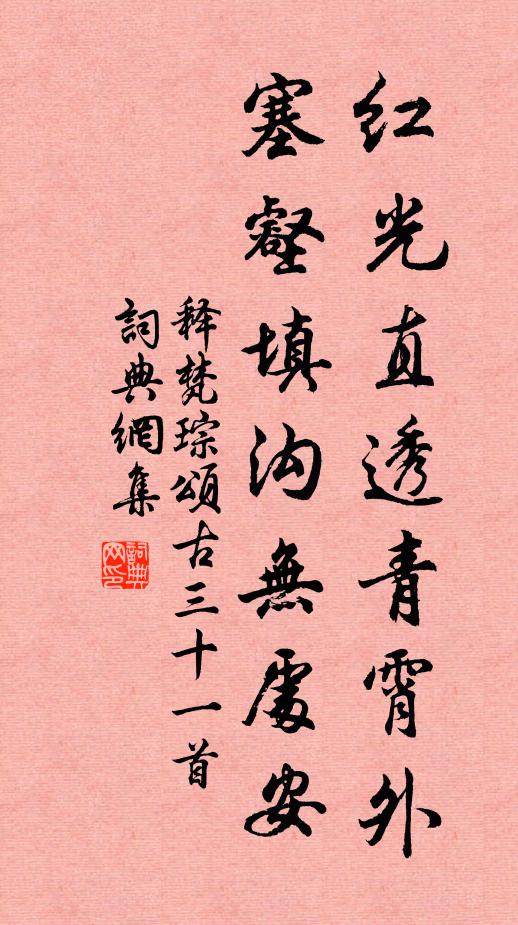 红光直透青霄外
塞壑填沟無處安
释梵琮頌古三十一首
詞典網集
詞典
网印